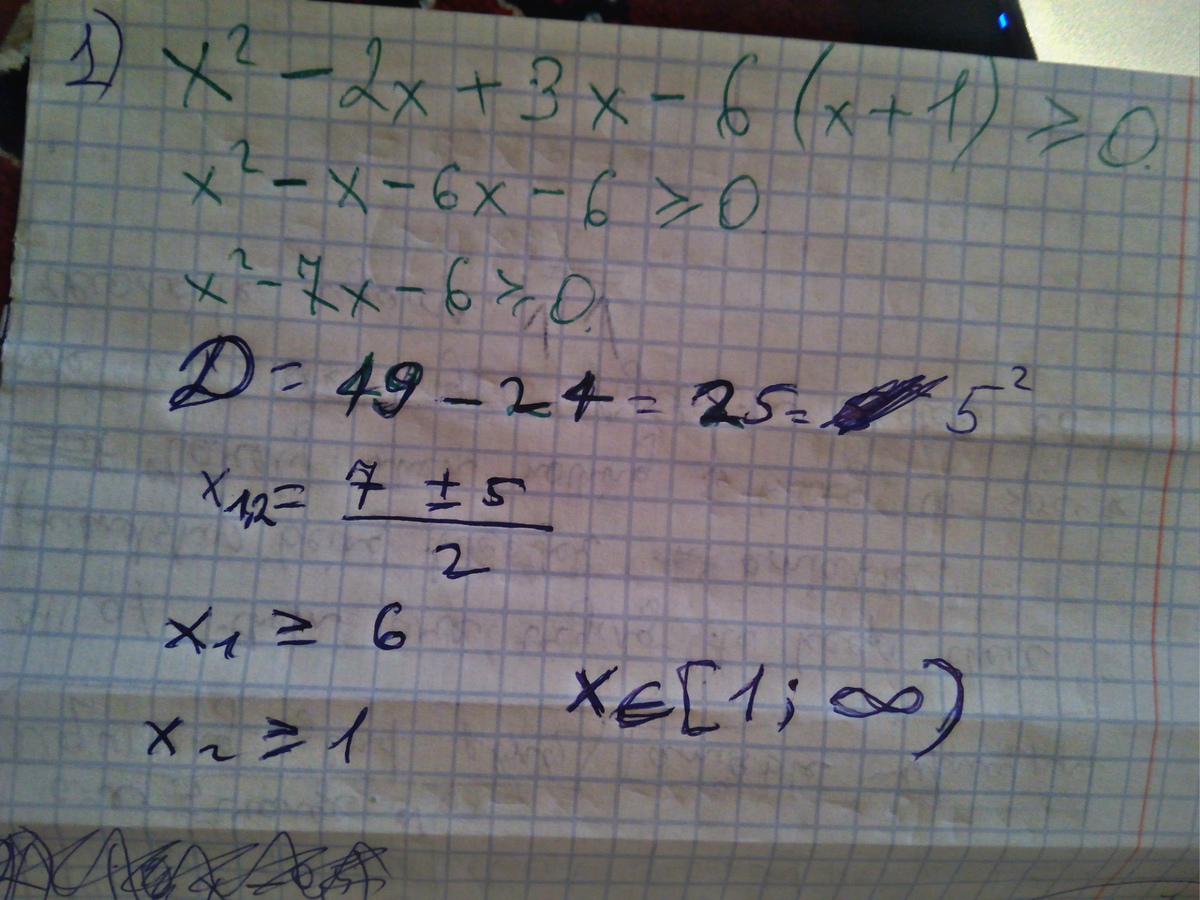 1) x² - 2x + 3x - 6 (x + 1) ≥ 0.
x² - x - 6x - 6 ≥ 0
x² - 7x - 6 ≥ 0.
D = 49 - 24 = 25 = 5²
x₁,₂ = (7 ± 5) / 2
x₁ ≥ 6
x₂ ≥ 1
x ∈ [1; ∞)